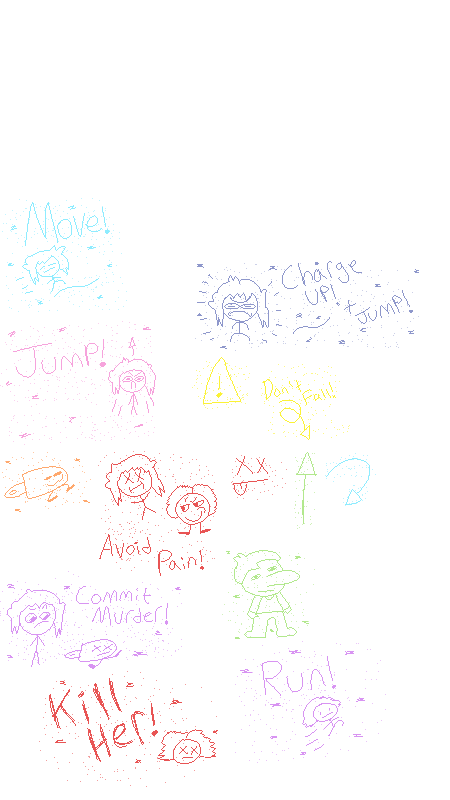 Move!
Charge
UP!
+ JUMP!
Jump!
Don't
Fall!
Avoid
Pain!
Commit
Murder!
Run!
Kill
Her!